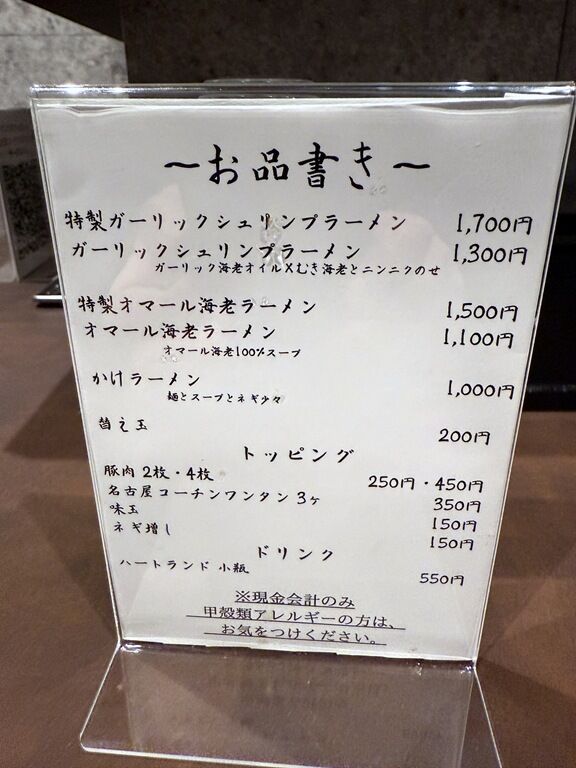 ～お品書き～
特製ガーリックシュリンプラーメン 1,700円
ガーリックシュリンプラーメン 1,300円
ガーリック海老オイル×むき海老とニンニクのせ
特製オマール海老ラーメン 1,500円
オマール海老ラーメン 1,100円
オマール海老100%スープ
かけラーメン 1,000円
麺とスープとネギ少々
替え玉 200円
トッピング
豚肉 2枚・4枚 250円・450円
名古屋コーチンワンタン 3ヶ 350円
味玉 150円
ネギ増し 150円
ドリンク
ハートランド 小瓶 550円
※現金会計のみ
甲殻類アレルギーの方は、
お気をつけください。